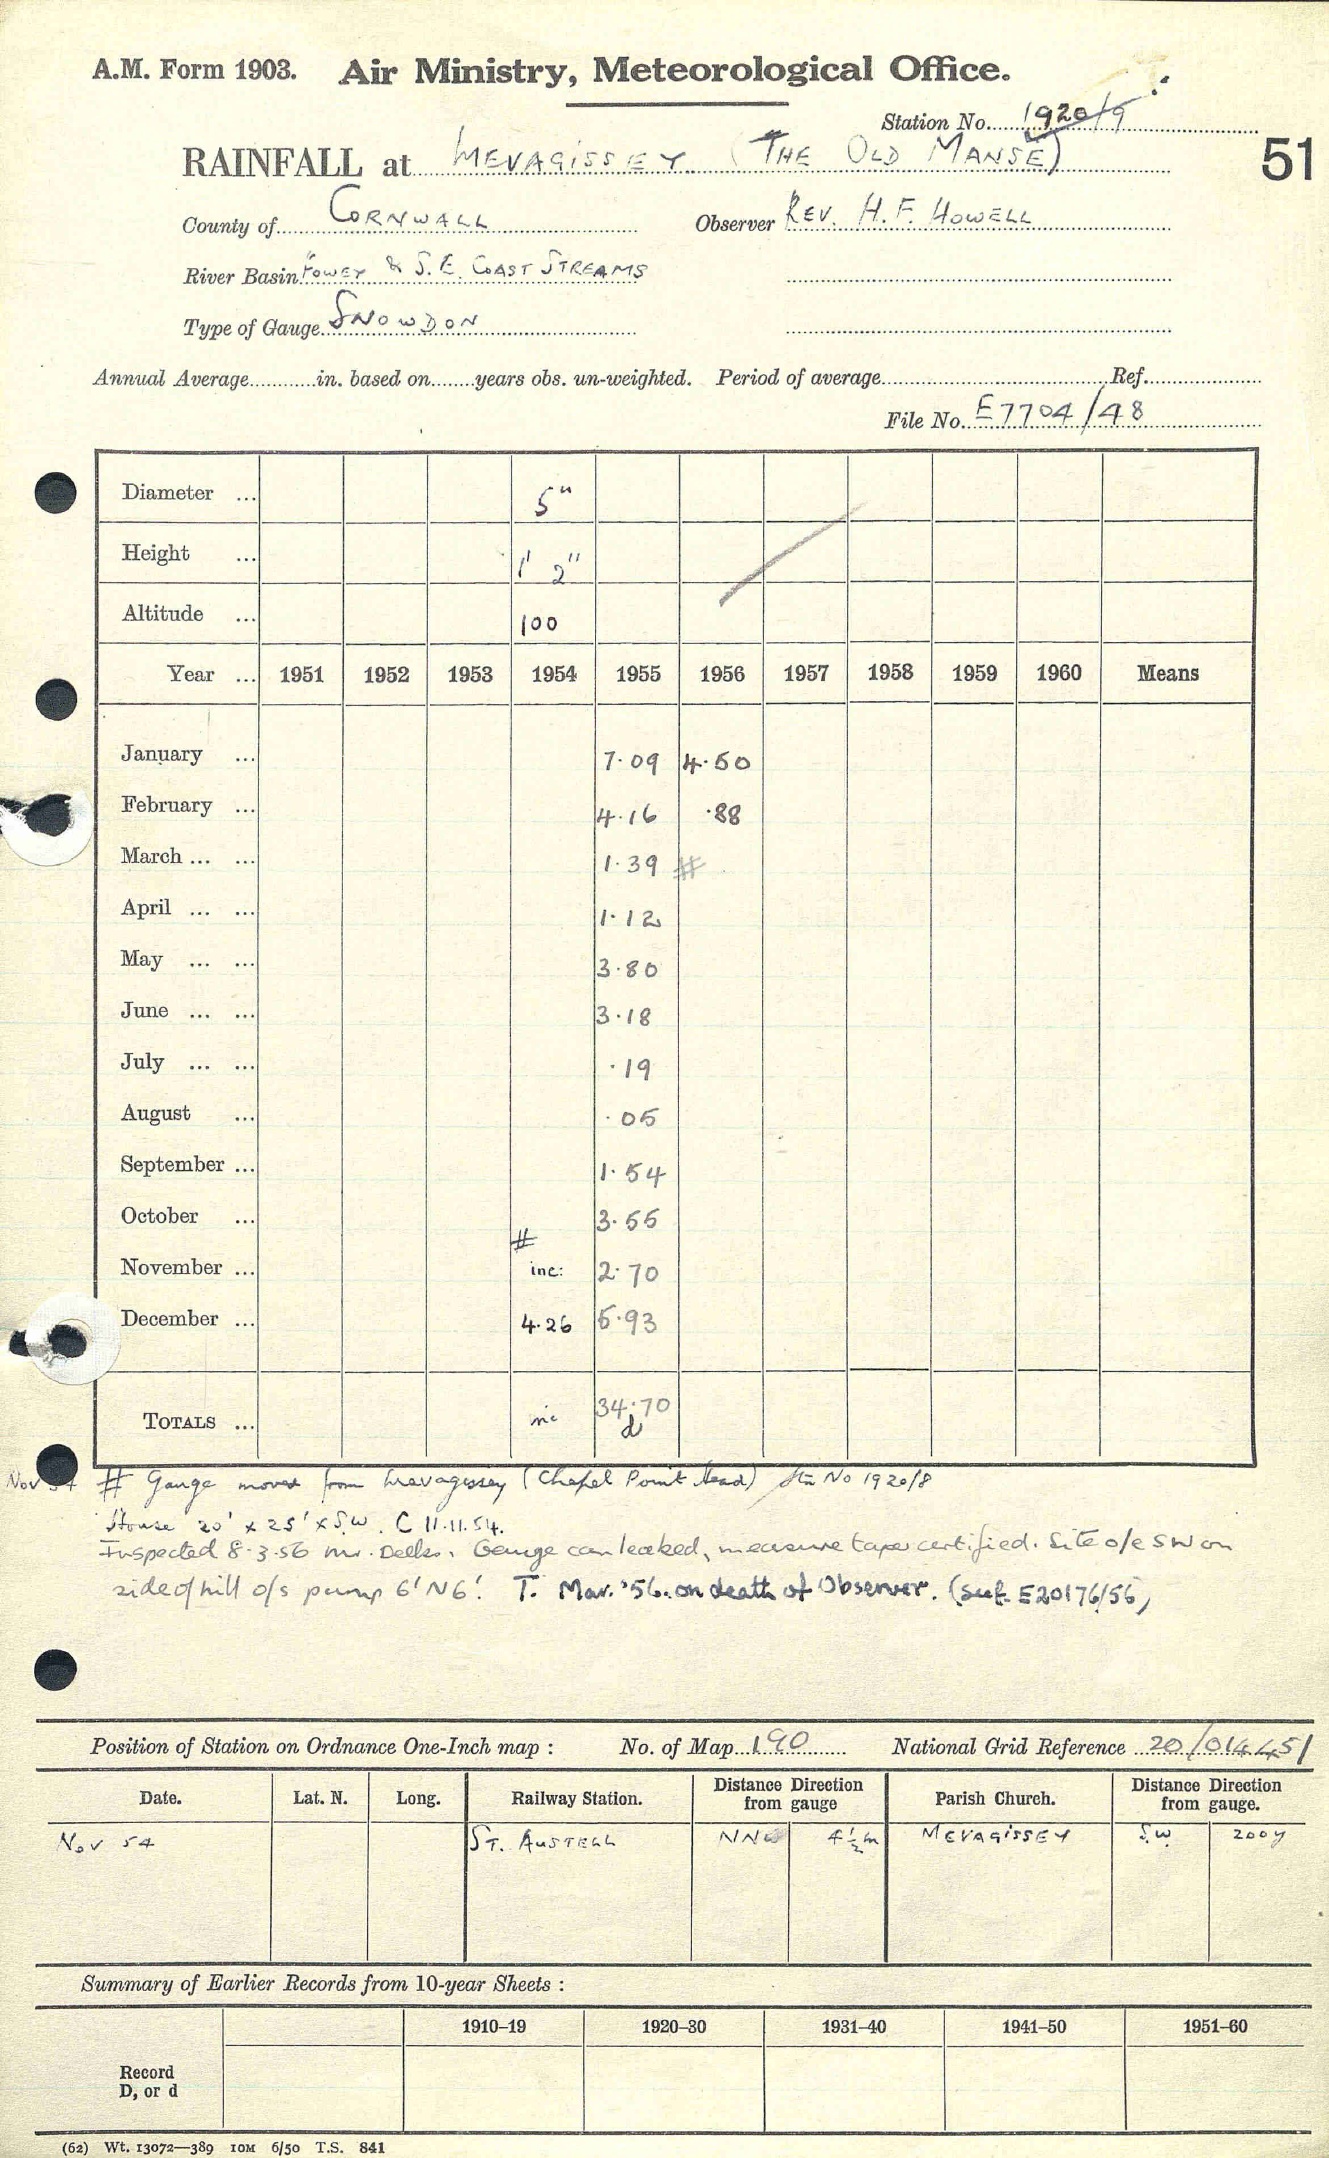 A.M. Form 1903. Air Ministry, Meteorological Office.
Station No. 1920/9
RAINFALL at MEVAGISSEY (THE OLD MANSE)
51
County of CORNWALL Observer REV. H. F. HOWELL
River Basin FOWEY & S.E. COAST STREAMS
Type of Gauge SNOWDON
Annual Average............in. based on........years obs. un-weighted. Period of average................Ref.............
File No. E7704/48
Diameter ... 5"
Height ... 1' 2"
Altitude ... 100
Year ... 1951 1952 1953 1954 1955 1956 1957 1958 1959 1960 Means
January ... 7.09 4.50
February ... 4.16 .88
March ... ... 1.39 #
April ... ... 1.12
May ... ... 3.80
June ... ... 3.18
July ... ... .19
August ... .05
September ... 1.54
October ... 3.55
#
November ... inc: 2.70
December ... 4.26 5.93
TOTALS ... inc 34.70
d
Nov 54 # Gauge moved from Mevagissey (Chapel Point Head) Stn No 1920/8
House 20' x 25' x S.W. C 11.11.54.
Inspected 8.3.56 Mr. Gauge can leaked, measure taper certified. Site o/e SW on
side of hill o/s pump 6' N 6'. T. Mar. '56. on death of Observer. (E20176/56)
Position of Station on Ordnance One-Inch map : No. of Map 190 National Grid Reference 20/014451
Date. Lat. N. Long. Railway Station. Distance Direction from gauge Parish Church. Distance Direction from gauge.
Nov 54 ST. AUSTELL NNW 4½m MEVAGISSEY S.W. 200y
Summary of Earlier Records from 10-year Sheets :
1910–19 1920–30 1931–40 1941–50 1951–60
Record
D, or d
(62) Wt. 13072—389 10M 6/50 T.S. 841